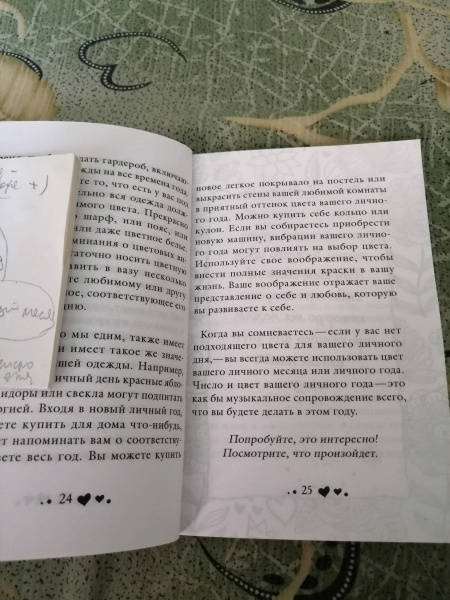 дать гардероб, включаю-
жды на все времена года.
те то, что есть у вас под
шь вся одежда долж-
имого цвета. Прекрасно
о шарф, или пояс, или
или даже цветное белье,
минания о цветовых
статочно носить цветную
авить в вазу несколько
е любимому или другу
ное, соответствующее его
дню.
о мы едим, также имеет
и имеет такое же значе-
шей одежды. Например,
чный день красные ябло-
идоры или свекла могут подпитать
ргией. Входя в новый личный год,
ете купить для дома что-нибудь,
ет напоминать вам о соответству-
вете весь год. Вы можете купить
24
новое легкое покрывало на постель или
выкрасить стены вашей любимой комнаты
в приятный оттенок цвета вашего лично-
го года. Можно купить себе кольцо или
кулон. Если вы собираетесь приобрести
новую машину, вибрации вашего лично-
го года могут повлиять на выбор цвета.
Используйте свое воображение, чтобы
внести полные значения краски в вашу
жизнь. Ваше воображение отражает ваше
представление о себе и любовь, которую
вы развиваете к себе.
Когда вы сомневаетесь — если у вас нет
подходящего цвета для вашего личного
дня, — вы всегда можете использовать цвет
вашего личного месяца или личного года.
Число и цвет вашего личного года — это
как бы музыкальное сопровождение всего,
что вы будете делать в этом году.
Попробуйте, это интересно!
Посмотрите, что произойдет.
25